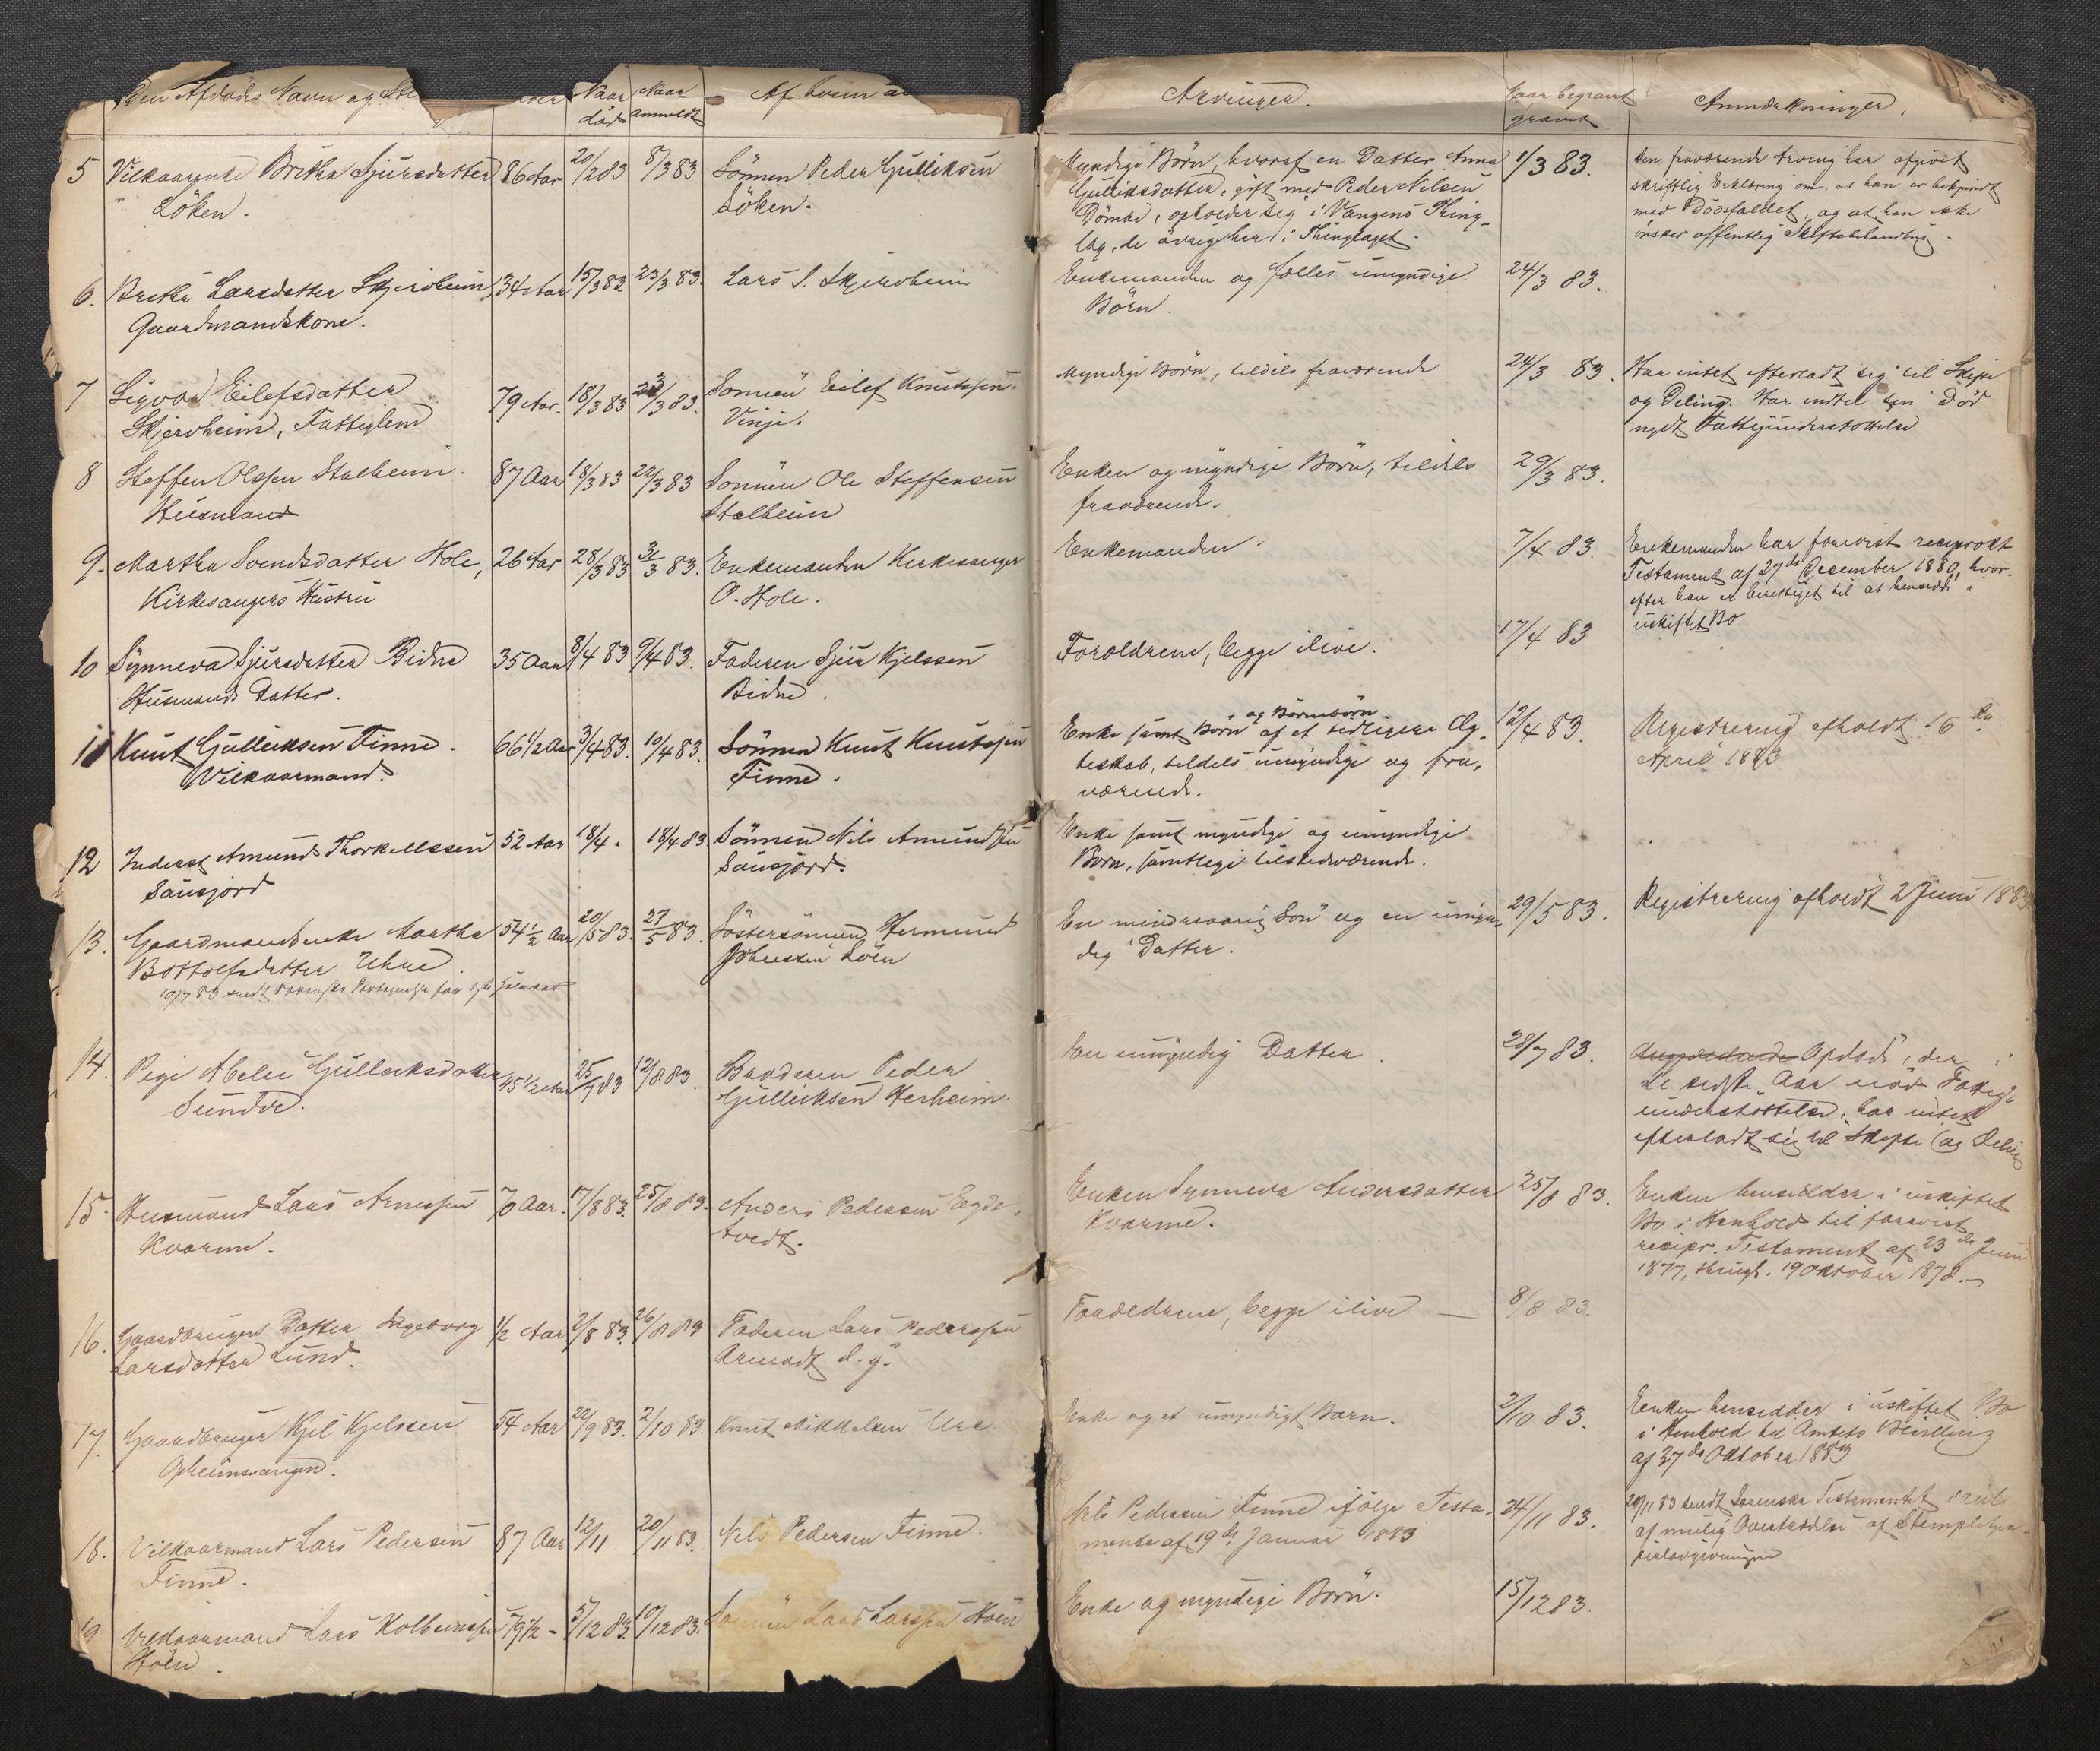 Den Afdødes Navn og
Naar død
Naar anmeldt
Af hvem
5 Vilkaarsenke Britha Sjursdatter 86 Aar 20/2 83 8/3 83 Sønnen Peder Gulliksen
Løken. Løken.
6. Britha Larsdatter Skjerveheim, 34 Aar 15/3 83 23/3 83. Lars S. Skjerveheim
Gaardmandskone.
7 Sigvor Eilefsdatter 79 Aar. 18/3 83 23/3 83. Sønnen Eilef Knutssen
Skjerveheim, Fattiglem Vinje.
8 Steffen Olssen Stalheim. 87 Aar 18/3 83 22/3 83 Sønnen Ole Steffensen
Husmand Stalheim
9. Martha Svendsdatter Hole, 26 Aar 28/3 83 31/3 83. Enkemanden Kirkesanger
Kirkesangers Hustru O. Hole.
10 Synneva Sjursdatter Bidne 35 Aar 8/4 83 9/4 83. Faderen Sjur Kjelssen
Husmands Datter. Bidne.
11 Knut Gulleiksen Finne. 66 1/2 Aar 3/4 83. 10/4 83. Sønnen Knut Knutssen
Vilkaarmand. Finne.
12 Inderst Amund Thorkellssen 52 Aar 18/4. 18/4 83 Sønnen Nils Amundssen
Sausjord Sausjord.
13. Gaardmandsenke Martha 54 1/2 Aar 20/5 83. 27/5 83. Søstersønnen Hermund
Bottolfsdatter Uhre. Løen
14. Abelee Gulleiksdatter 45 1/2 Aar 25/7 83 12/8 83. Broderen Peder
Sundve. Gulleiksen Herheim.
15. Husmand Lars Arnessen 70 Aar. 17/8 83. 25/8 83. Anders Pedersen Egde-
Kvarme. tvedt.
16. Gaardbruger Datter Ingeborg 1/2 Aar 2/8 83. 26/8 83 Faderen Lars Pederssen
Larsdatter Lund. d. y.
17. Gaardbruger Kjel Kjelssen 54 Aar 22/9 83. 2/10 83. Knut Mikkelsen Ure
Opheimsvangen.
18. Vilkaarmand Lars Pedersen 87 Aar 12/11 20/11 83. Nils Pedersen Finne.
Finne.
19 Vilkaarmand Lars Kolbeinssen 79 1/2 - 5/12 83. 10/12 83. Sønnen Lars Larssen Høen
Høen.
Arvinger. Naar begravet Anmærkninger.
Myndige Børn, hvoraf en Datter Anna 1/3 83. Den fraværende Arving har afgivet
Gulliksdatter, gift med Peder Nilsen skriftlig Erklæring om, at han er bekjendt
opholder sig i Vangens Thing- med Dødsfaldet, og at han ikke
lag, de øvrige her i Thinglaget. ønsker offentlig Skiftebehandling.
Enkemanden og fælles umyndige 24/3 83.
Børn.
Myndige Børn, tildels fraværende 24/3 83. Har intet efterladt sig til Skifte
og Deling. Har indtil sin Død
nydt Fattigunderstøttelse
Enken og myndige Børn, tildels 29/3 83.
fraværende.
Enkemanden. 7/4 83. Enkemanden har forevist reciprokt
Testament af 27de December 1880, hvor-
efter han er berettiget til at hensidde i
uskiftet Bo
Forældrene, begge ilive. 17/4 83
Enke samt Børn og Børnebørn af et tidligere Æg- 12/4 83. Registrering afholdt 16de
teskab, tildels umyndige og fra- April 1883
værende.
Enke samt myndige og umyndige
Børn, samtlige tilstedeværende.
En mindreaarig Søn og en umyn- 29/5 83. Registrering afholdt 2 Juni 1883
dig Datter.
En umyndig Datter. 28/7 83. Afdøde, der i
de sidste Aar nød Fattig-
understøttelse, har intet
efterladt sig til Skifte og Deling
Enken Synneva Andersdatter 25/8 83. Enken hensidder i uskiftet
Kvarme. Bo i Henhold til forevist
recipr. Testament af 23de Juni
1877, thingl. 19 Oktober 1878.-
Forældrene, begge ilive - 8/8 83.
Enke og et umyndigt Barn. 2/10 83. Enken hensidder i uskiftet Bo
i Henhold til Amtets Bevilling
af 27de Oktober 1883
Nils Pedersen Finne ifølge Testa- 24/11 83. 20/11 83 sendt Sorenskr. Testamentet
mente af 19de Januar 1883 af mulig Overtrædelse af
Enke og myndige Børn. 15/12 83.